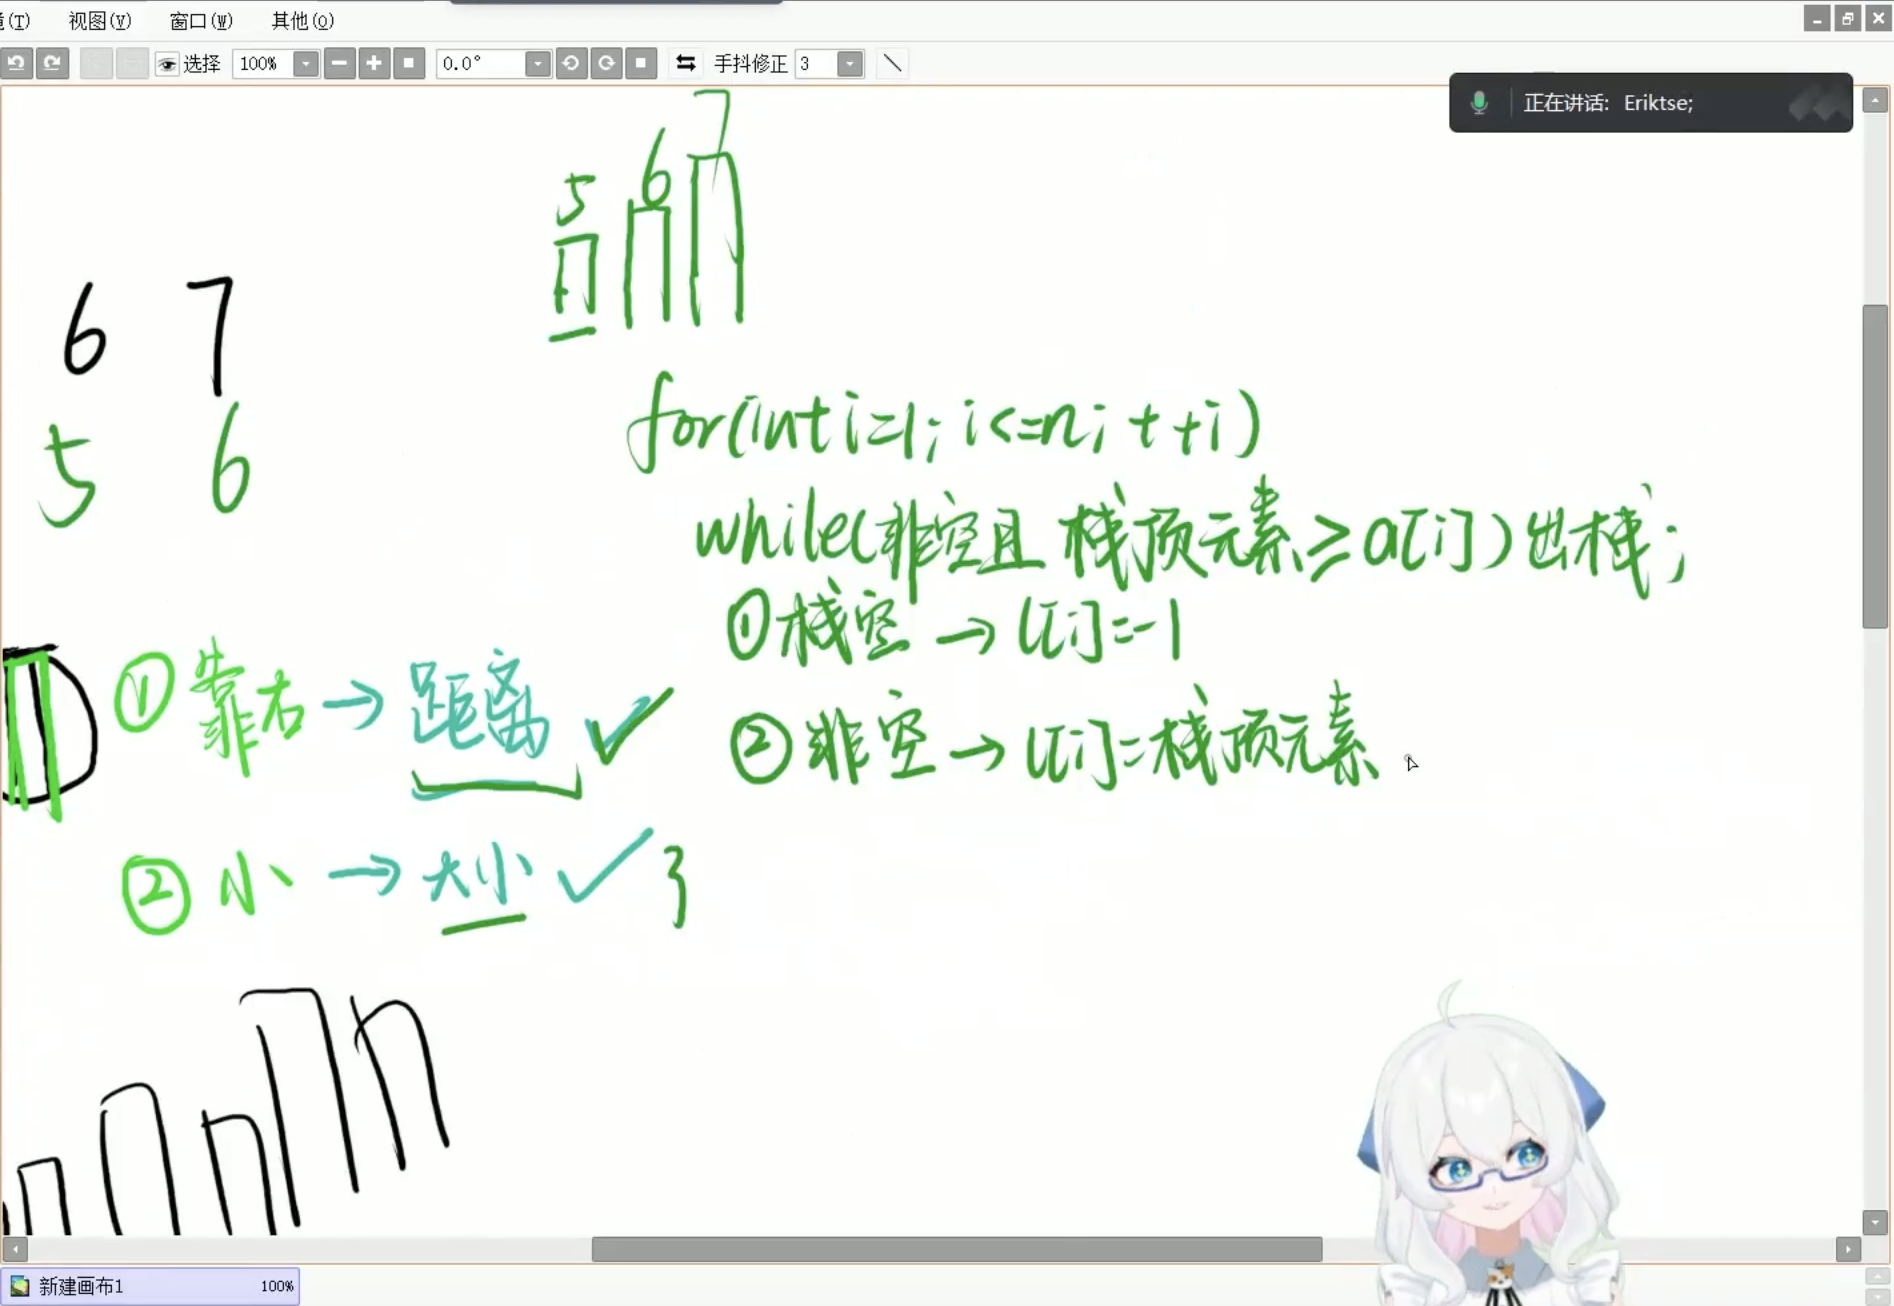 (T) 视图(V) 窗口(W) 其他(O)
选择 100% 0.0° 手抖修正 3
正在讲话: Eriktse;
5 6 7
6 7
5 6
for(int i=1; i<=n; ++i)
while(非空且 栈顶元素≥a[i]) 出栈;
①栈空 → l[i]=-1
②非空 → l[i]=栈顶元素
①靠右 → 距离 ✓
②小 → 大小 ✓
新建画布1 100%